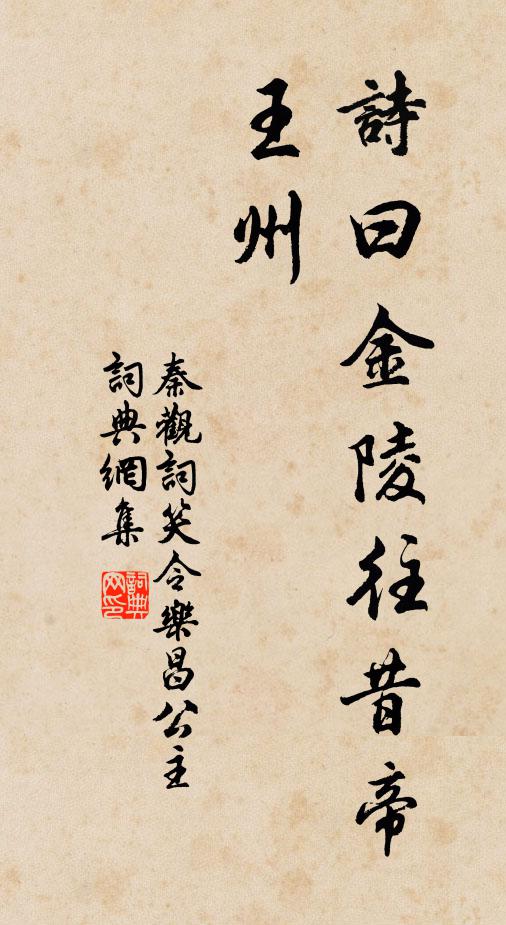 詩曰金陵往昔帝
王州
秦觀詞笑令樂昌公主
詞典網集
詞典
网印